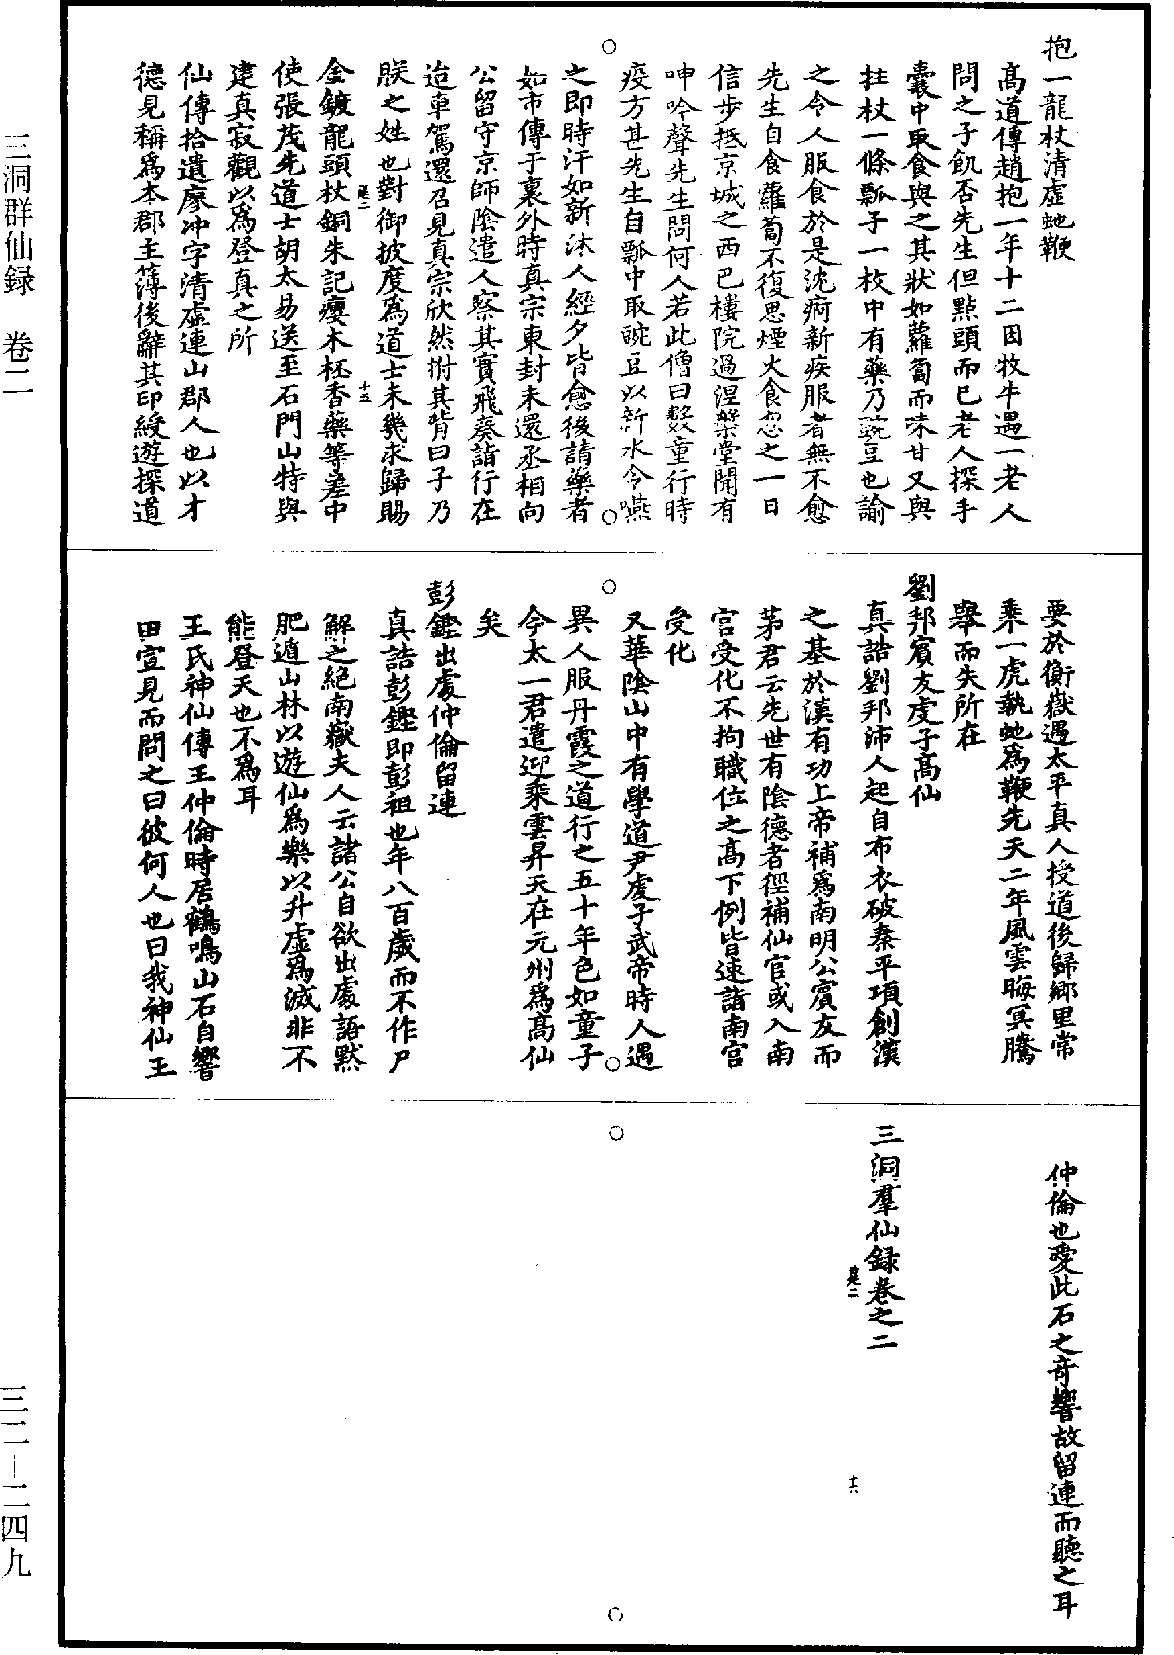 抱一龍杖清虛虵鞭
高道傳趙抱一年十二因牧牛遇一老人
問之子飢否先生但點頭而已老人探手
囊中取食與之其狀如蘿蔔而味甘又與
拄杖一條瓢子一枚中有藥乃豌豆也諭
之令人服食於是沈痾新疾服者無不愈
先生自食蘿蔔不復思煙火食忽之一日
信步抵京城之西巴樓院過涅槃堂聞有
呻吟聲先生問何人若此僧曰數童行時
疫方甚先生自瓢中取豌豆以新水令嚥
之即時汗如新沐人經夕皆愈後請藥者
如市傳于裏外時真宗東封未還丞相向
公留守京師陰遣人察其實飛奏詣行在
迨車駕還召見真宗欣然拊其背曰子乃
朕之姓也對御披度為道士未幾求歸賜
金鍍龍頭杖銅朱記癭木柸香藥等差中
使張茂先道士胡太易送至石門山特與
建真寂觀以為登真之所
仙傳拾遺廖冲字清虛連山郡人也以才
德見稱為本郡主薄後辭其印綬遊探道
要於衡嶽遇太平真人授道後歸鄉里常
乘一虎執虵為鞭先天二年風雲晦冥騰
舉而失所在
劉邦賓友虔子高仙
真誥劉邦沛人起自布衣破秦平項創漢
之基於漢有功上帝補為南明公賓友而
茅君云先世有陰德者徑補仙官或入南
宮受化不拘職位之高下例皆速詣南宮
受化
又華陰山中有學道尹虔子武帝時人遇
異人服丹霞之道行之五十年色如童子
今太一君遣迎乘雲昇天在元州為高仙
矣
彭鏗出處仲倫留連
真誥彭鏗即彭祖也年八百歲而不作尸
解之絕南嶽夫人云諸公自欲出處語默
肥遁山林以遊仙為樂以升虛為滅非不
能登天也不為耳
王氏神仙傳王仲倫時居鶴鳴山石自響
田宣見而問之曰彼何人也曰我神仙王
仲倫也愛此石之奇響故留連而聽之耳
三洞羣仙録卷之二
十五
十六
三洞群仙録 卷二
三二—二四九